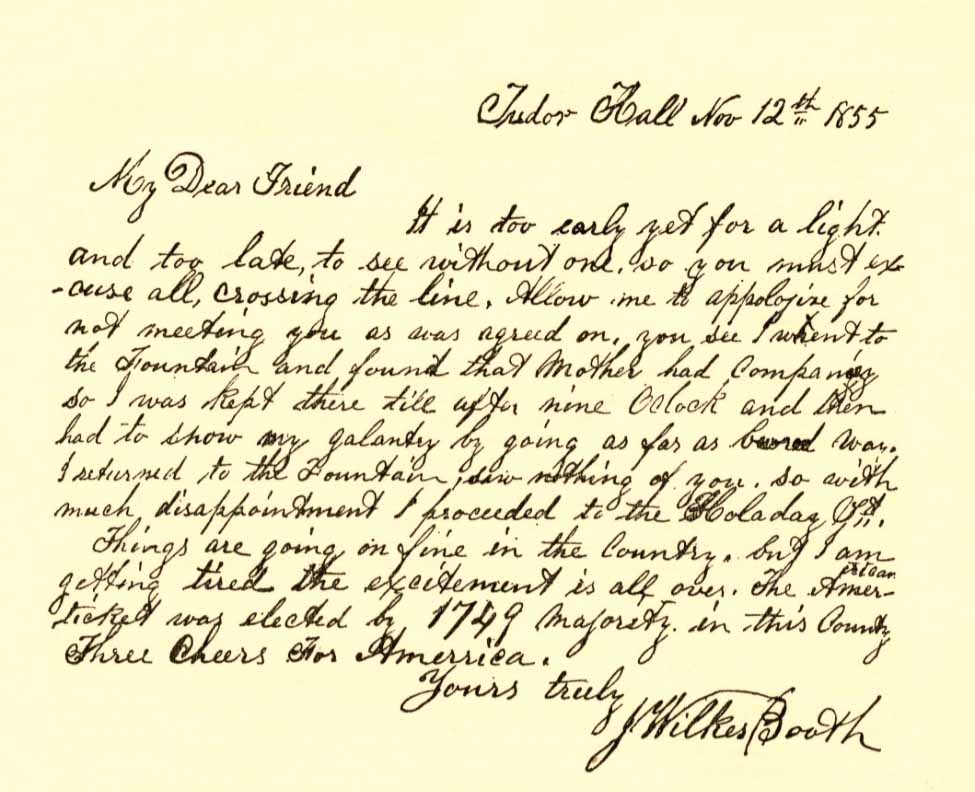 Tudor Hall Nov 12th 1855
My Dear Friend
It is too early yet for a light.
and too late, to see without one, so you must ex-
-cuse all, crossing the line. Allow me to appologize for
not meeting you as was agreed on, you see I whent to
the Fountain and found that Mother had company
so I was kept there till after nine Oclock and then
had to show my galantry by going as far as way.
I returned to the Fountain, saw nothing of you. so with
much disappointment I proceeded to the Holaday St.
Things are going on fine in the country. but I am
getting tired the excitement is all over. The Amer-
rican
ticket was elected by 1749 majorety. in this County
Three Cheers For Amerrica.
Yours truly
J Wilkes Booth